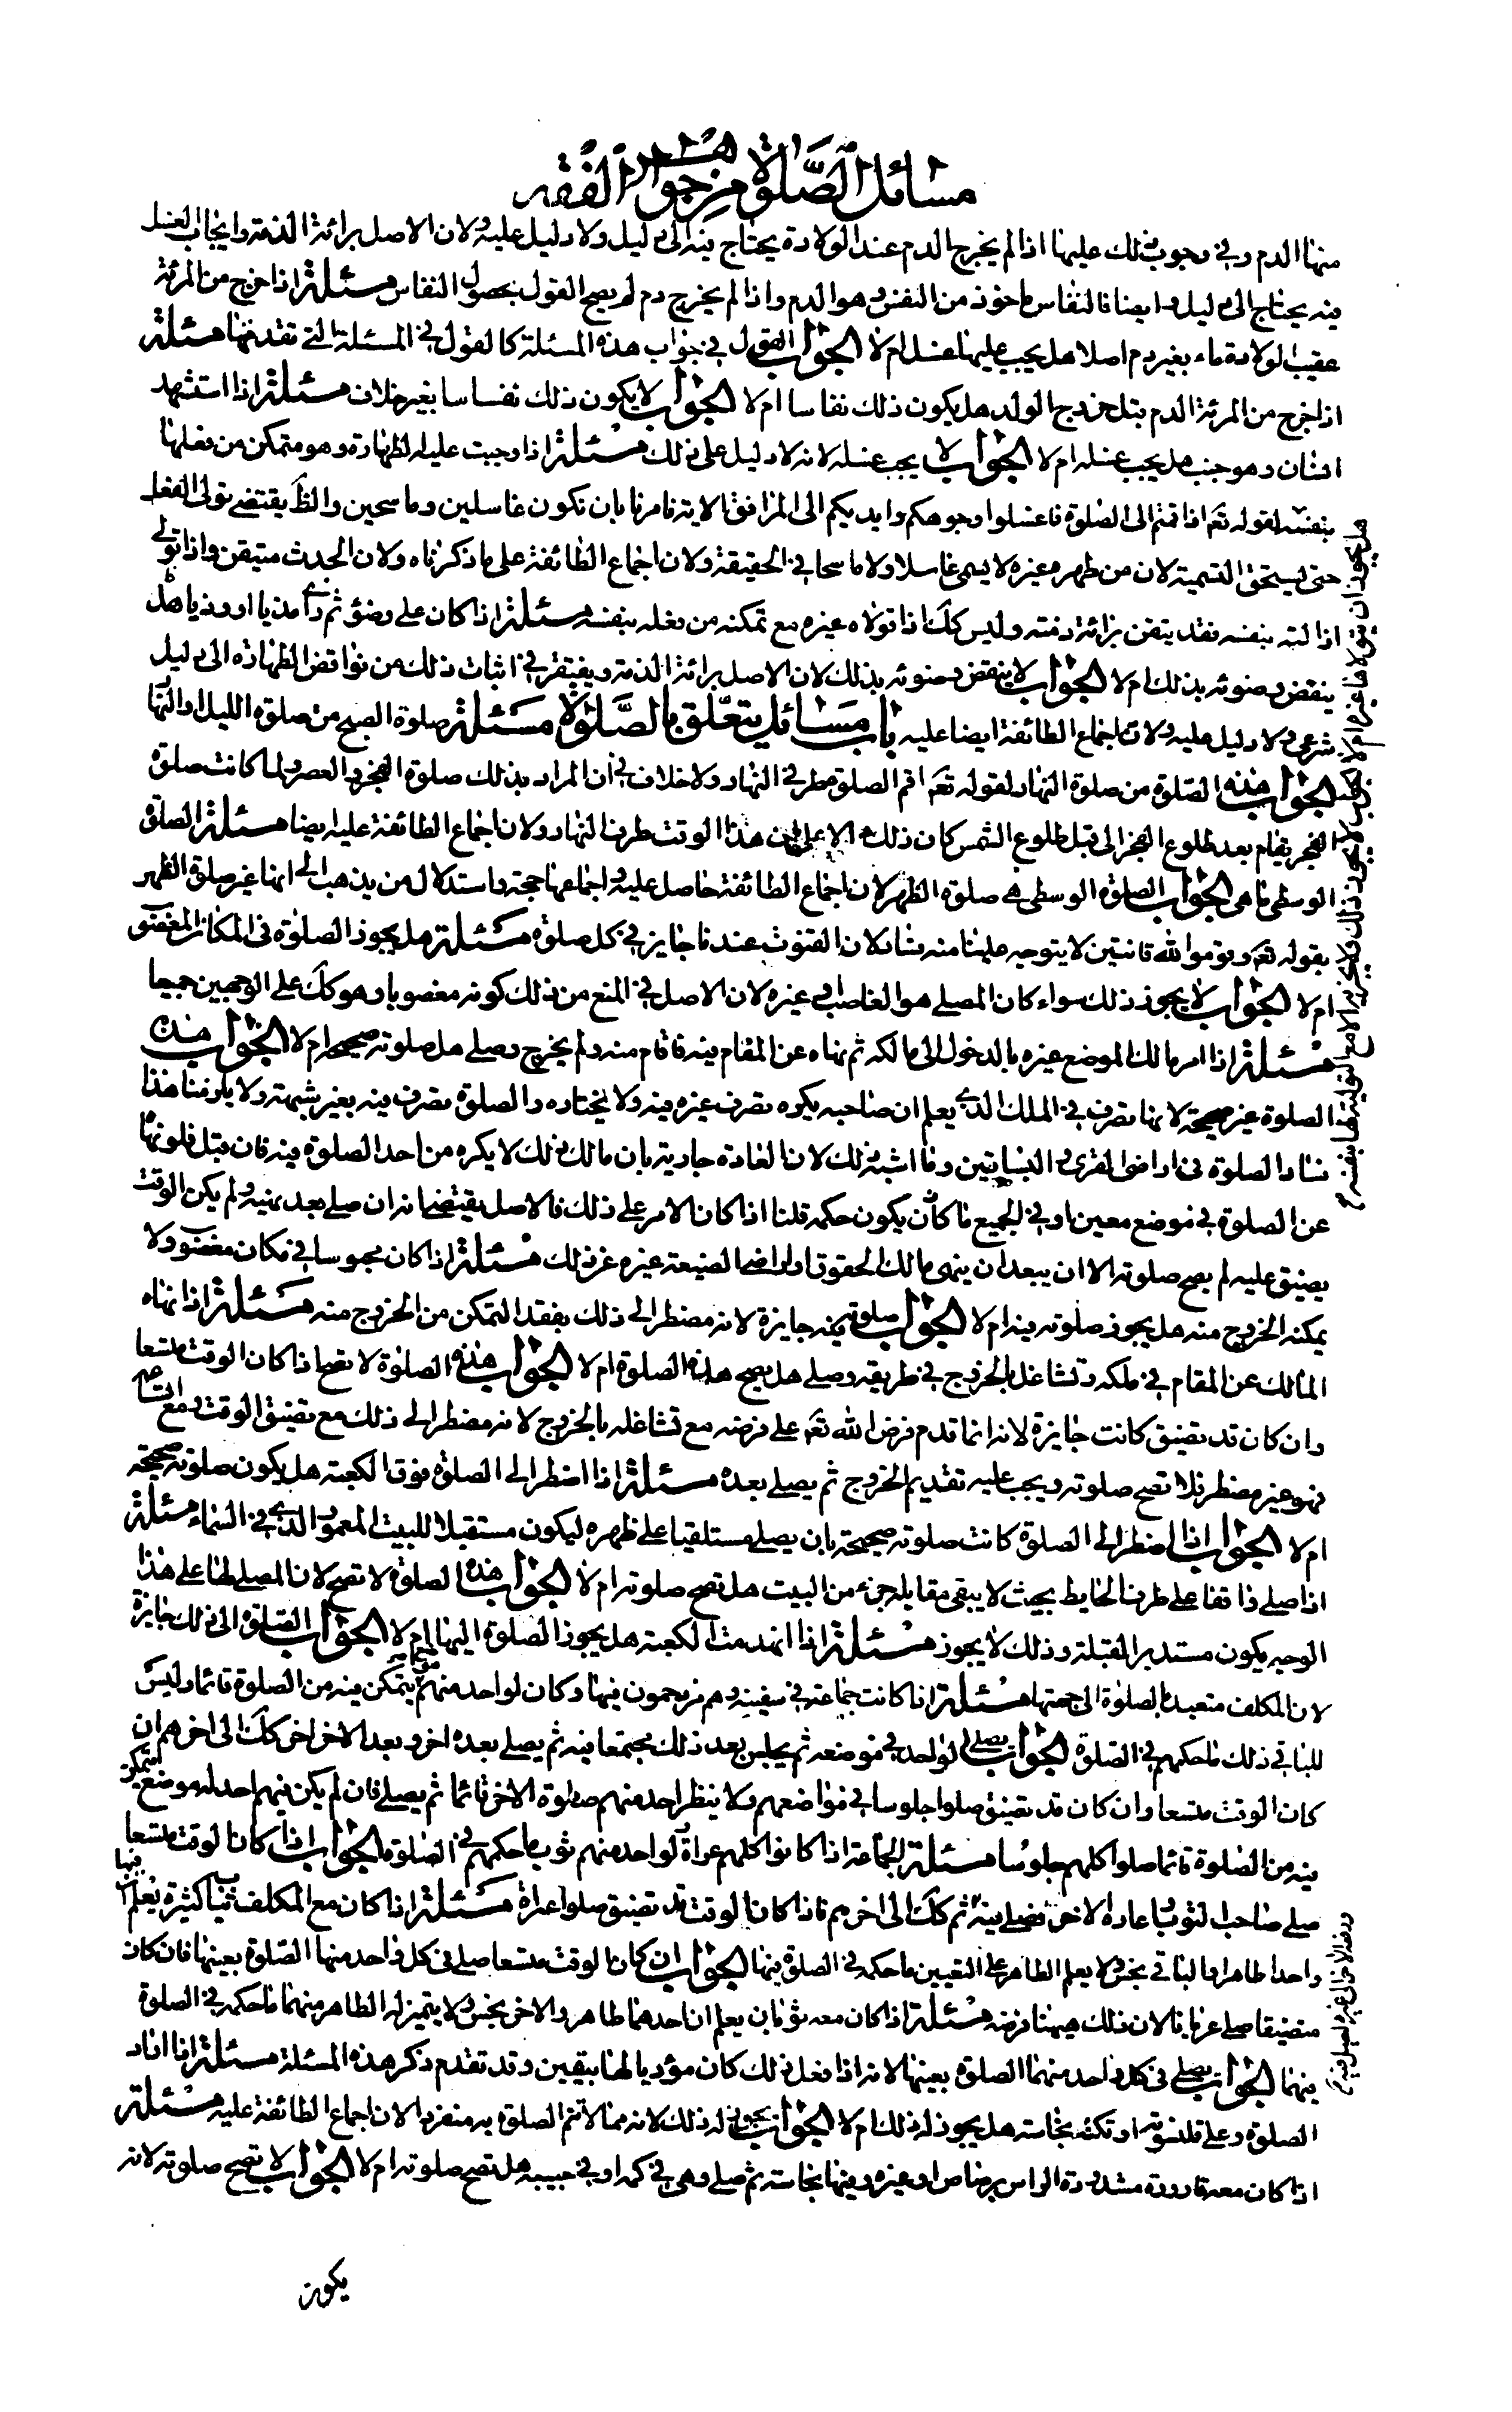 مسائل الصلوة من جواهر الفقه
منها الدم وفي وجوب ذلك عليها اذا لم يخرج الدم عند الولادة يحتاج فيه الى دليل ولا دليل عليه ولان الاصل برائة الذمة وايجاب الغسل
فيه يحتاج الى دليل وايضا فالنفاس ماخوذ من النفس وهو الدم واذا لم يخرج دم لم يصح القول بحصول النفاس مسئلة اذا خرج من المرئة
عقيب الولادة ماء بغير دم اصلا هل يجب عليها غسل ام لا الجواب القول في جواب هذه المسئلة كالقول في المسئلة التي تقدمتها مسئلة
اذا خرج من المرئة الدم قبل خروج الولد هل يكون ذلك نفاسا ام لا الجواب لا يكون ذلك نفاسا بغير خلاف مسئلة اذا استشهد
انسان وهو جنب هل يجب غسله ام لا الجواب لا يجب غسله لانه لا دليل على ذلك مسئلة اذا وجبت عليه الطهارة وهو متمكن من فعلها
هل يجوز ان يتولاها غيره ام لا الجواب لا يجوز ذلك ولا يجزيه الا مع التولية لها بنفسه
بنفسه لقوله تعم اذا قمتم الى الصلوة فاغسلوا وجوهكم وايديكم الى المرافق الاية فامرنا بان نكون غاسلين وماسحين والظ يقتضي تولى الفعل
حتى يستحق التسمية لان من طهره غيره لا يسمى غاسلا ولا ماسحا في الحقيقة ولان اجماع الطائفة على ما ذكرناه ولان الحدث متيقن واذا تولى
ازالته بنفسه فقد يتقن برائة ذمته وليس كك اذا تولاه غيره مع تمكنه من فعله بنفسه مسئلة اذا كان على وضؤ ثم راى مذيا او وذيا هل
ينقض وضوئه بذلك ام لا الجواب لا ينقض وضوئه بذلك لان الاصل برائة الذمة ويفتقر في اثبات ذلك من نواقض الطهارة الى دليل
شرعي ولا دليل عليه ولان اجماع الطائفة ايضا عليه باب مسائل يتعلق بالصلوة مسئلة صلوة الصبح من صلوة الليل او النهار
الجواب هذه الصلوة من صلوة النهار لقوله تعم اقم الصلوة طرفي النهار ولا خلاف في ان المراد بذلك صلوة الفجر والعصر ولما كانت صلوة
الفجر يقام بعد طلوع الفجر الى قبل طلوع الشمس كان ذلك دالا على ان هذا الوقت طرف النهار ولان اجماع الطائفة عليه ايضا مسئلة الصلوة
الوسطى ما هى الجواب الصلوة الوسطى هي صلوة الظهر لان اجماع الطائفة حاصل عليه واجماعها حجة واستدلال من يذهب الى انها غير صلوة الظهر
بقوله تعم وقوموا لله قانتين لا يتوجه علينا منه شئ لان القنوت عندنا جايز في كل صلوة مسئلة هل يجوز الصلوة فى المكان المغصوب
ام لا الجواب لا يجوز ذلك سواء كان المصلى هو الغاصب او غيره لان الاصل في المنع من ذلك كونه مغصوبا وهو كك على الوجهين جميعا
مسئلة اذا امر مالك الموضع غيره بالدخول الى مالكه ثم نهاه عن المقام فيه فاقام منه ولم يخرج وصلى هل صلوته صحيحة ام لا الجواب هذه
الصلوة غير صحيحة لانها تصرف في الملك الذي يعلم ان صاحبه يكره تصرف غيره فيه ولا يختاره والصلوة تصرف فيه بغير شبهة ولا يلزمنا هذا
فساد الصلوة فى اراضى القرى والبساتين وما اشبه ذلك لان العادة جارية بان مالك ذلك لا يكره من احد الصلوة فيه فان قيل فلو نهى
عن الصلوة في موضع معين او في الجميع ما كان يكون حكمه قلنا اذا كان الامر على ذلك فالاصل يقتضى انه ان صلى بعد نهيه ولم يكن الوقت
يضيق عليه لم يصح صلوته الا ان يبعد ان ينهى مالك الحقوق اراضى الضيعة غيره عن ذلك مسئلة اذا كان محبوسا في مكان مغصوب ولا
يمكنه الخروج منه هل يجوز صلوته فيه ام لا الجواب صلوته فيه جايزة لانه مضطر الى ذلك بفقد التمكن من الخروج منه مسئلة اذا نهاه
المالك عن المقام في ملكه وتشاغل بالخروج في طريقه وصلى هل يصح هذه الصلوة ام لا الجواب هذه الصلوة لا تصح اذا كان الوقت متسعا
وان كان قد تضيق كانت جايزة لانه انما قدم فرض الله تعم على فرضه مع تشاغله بالخروج لانه مضطر الى ذلك مع تضيق الوقت ومع اتساعه
فهو غير مضطر فلا تصح صلوته ويجب عليه تقديم الخروج ثم يصلى بعده مسئلة اذا اضطر الى الصلوة فوق الكعبة هل يكون صلوته صحيحة
ام لا الجواب اذا اضطر الى الصلوة كانت صلوته صحيحة بان يصلى مستلقيا على ظهره ليكون مستقبلا للبيت المعمور الذي في السماء مسئلة
اذا صلى واقفا على طرف الحايط بحيث لا يبقى مقابله جزء من البيت هل تصح صلوته ام لا الجواب هذه الصلوة لا تصح لان المصلى لها على هذا
الوجه يكون مستدبر القبلة وذلك لا يجوز مسئلة اذا انهدمت الكعبة هل يجوز الصلوة اليها ام لا الجواب الصلوة الى ذلك جايزة
لان المكلف متعبد بالصلوة الى جهتها مسئلة اذا كانت جماعة في سفينة وهم مزدحمون فيها وكان لواحد منهم موضعا يتمكن فيه من الصلوة قائما وليس
للباقى ذلك ما حكمهم في الصلوة الجواب يصلى الواحد في موضعه ثم يجلس بعد ذلك مجتمعا فيه ثم يصلى بعده اخر وبعد الاخر اخر كك الى اخرهم ان
كان الوقت متسعا وان كان قد تضيق صلوا جلوسا في مواضعهم ولا ينظر احد منهم صلوة الاخر قائما ثم يصلى فان لم يكن فيهم احد له موضع يتمكن
فيه من الصلوة قائما صلوا كلهم جلوسا مسئلة الجماعة اذا كانوا كلهم عراة ولواحد منهم ثوب ما حكمهم في الصلوة الجواب اذا كان الوقت متسعا
صلى صاحب الثوب واعاره الاخر فصلى فيه ثم كك الى اخرهم فاذا كان الوقت قد تضيق صلوا عراة مسئلة اذا كان مع المكلف ثياب كثيرة يعلم ان فيها
واحدا طاهرا والباقى نجس ولا يعلم الطاهر على التعيين ما حكمه في الصلوة فيها الجواب ان كان الوقت متسعا صلى فى كل واحد منها الصلوة بعينها فان كان
متضيقا صلى عريانا لان ذلك هيهنا فرضه مسئلة اذا كان معه ثوبان يعلم ان احدهما طاهر والاخر نجس ولا يتميز له الطاهر منهما ما حكمه في الصلوة
فيهما الجواب يصلى فى كل واحد منهما الصلوة بعينها لانه اذا فعل ذلك كان مؤديا لها بيقين وقد تقدم ذكر هذه المسئلة مسئلة اذا اراد
الصلوة وعلى قلنسوته او تكته نجاسة هل يجوز له ذلك ام لا الجواب يجوز له ذلك لانه مما لا تتم الصلوة به منفردا لان اجماع الطائفة عليه مسئلة
اذا كان معه قارورة مشدودة الراس برصاص او غيره وفيها نجاسة ثم صلى وهي في كمه او في جيبه هل تصح صلوته ام لا الجواب لا تصح صلوته لانه
يكون